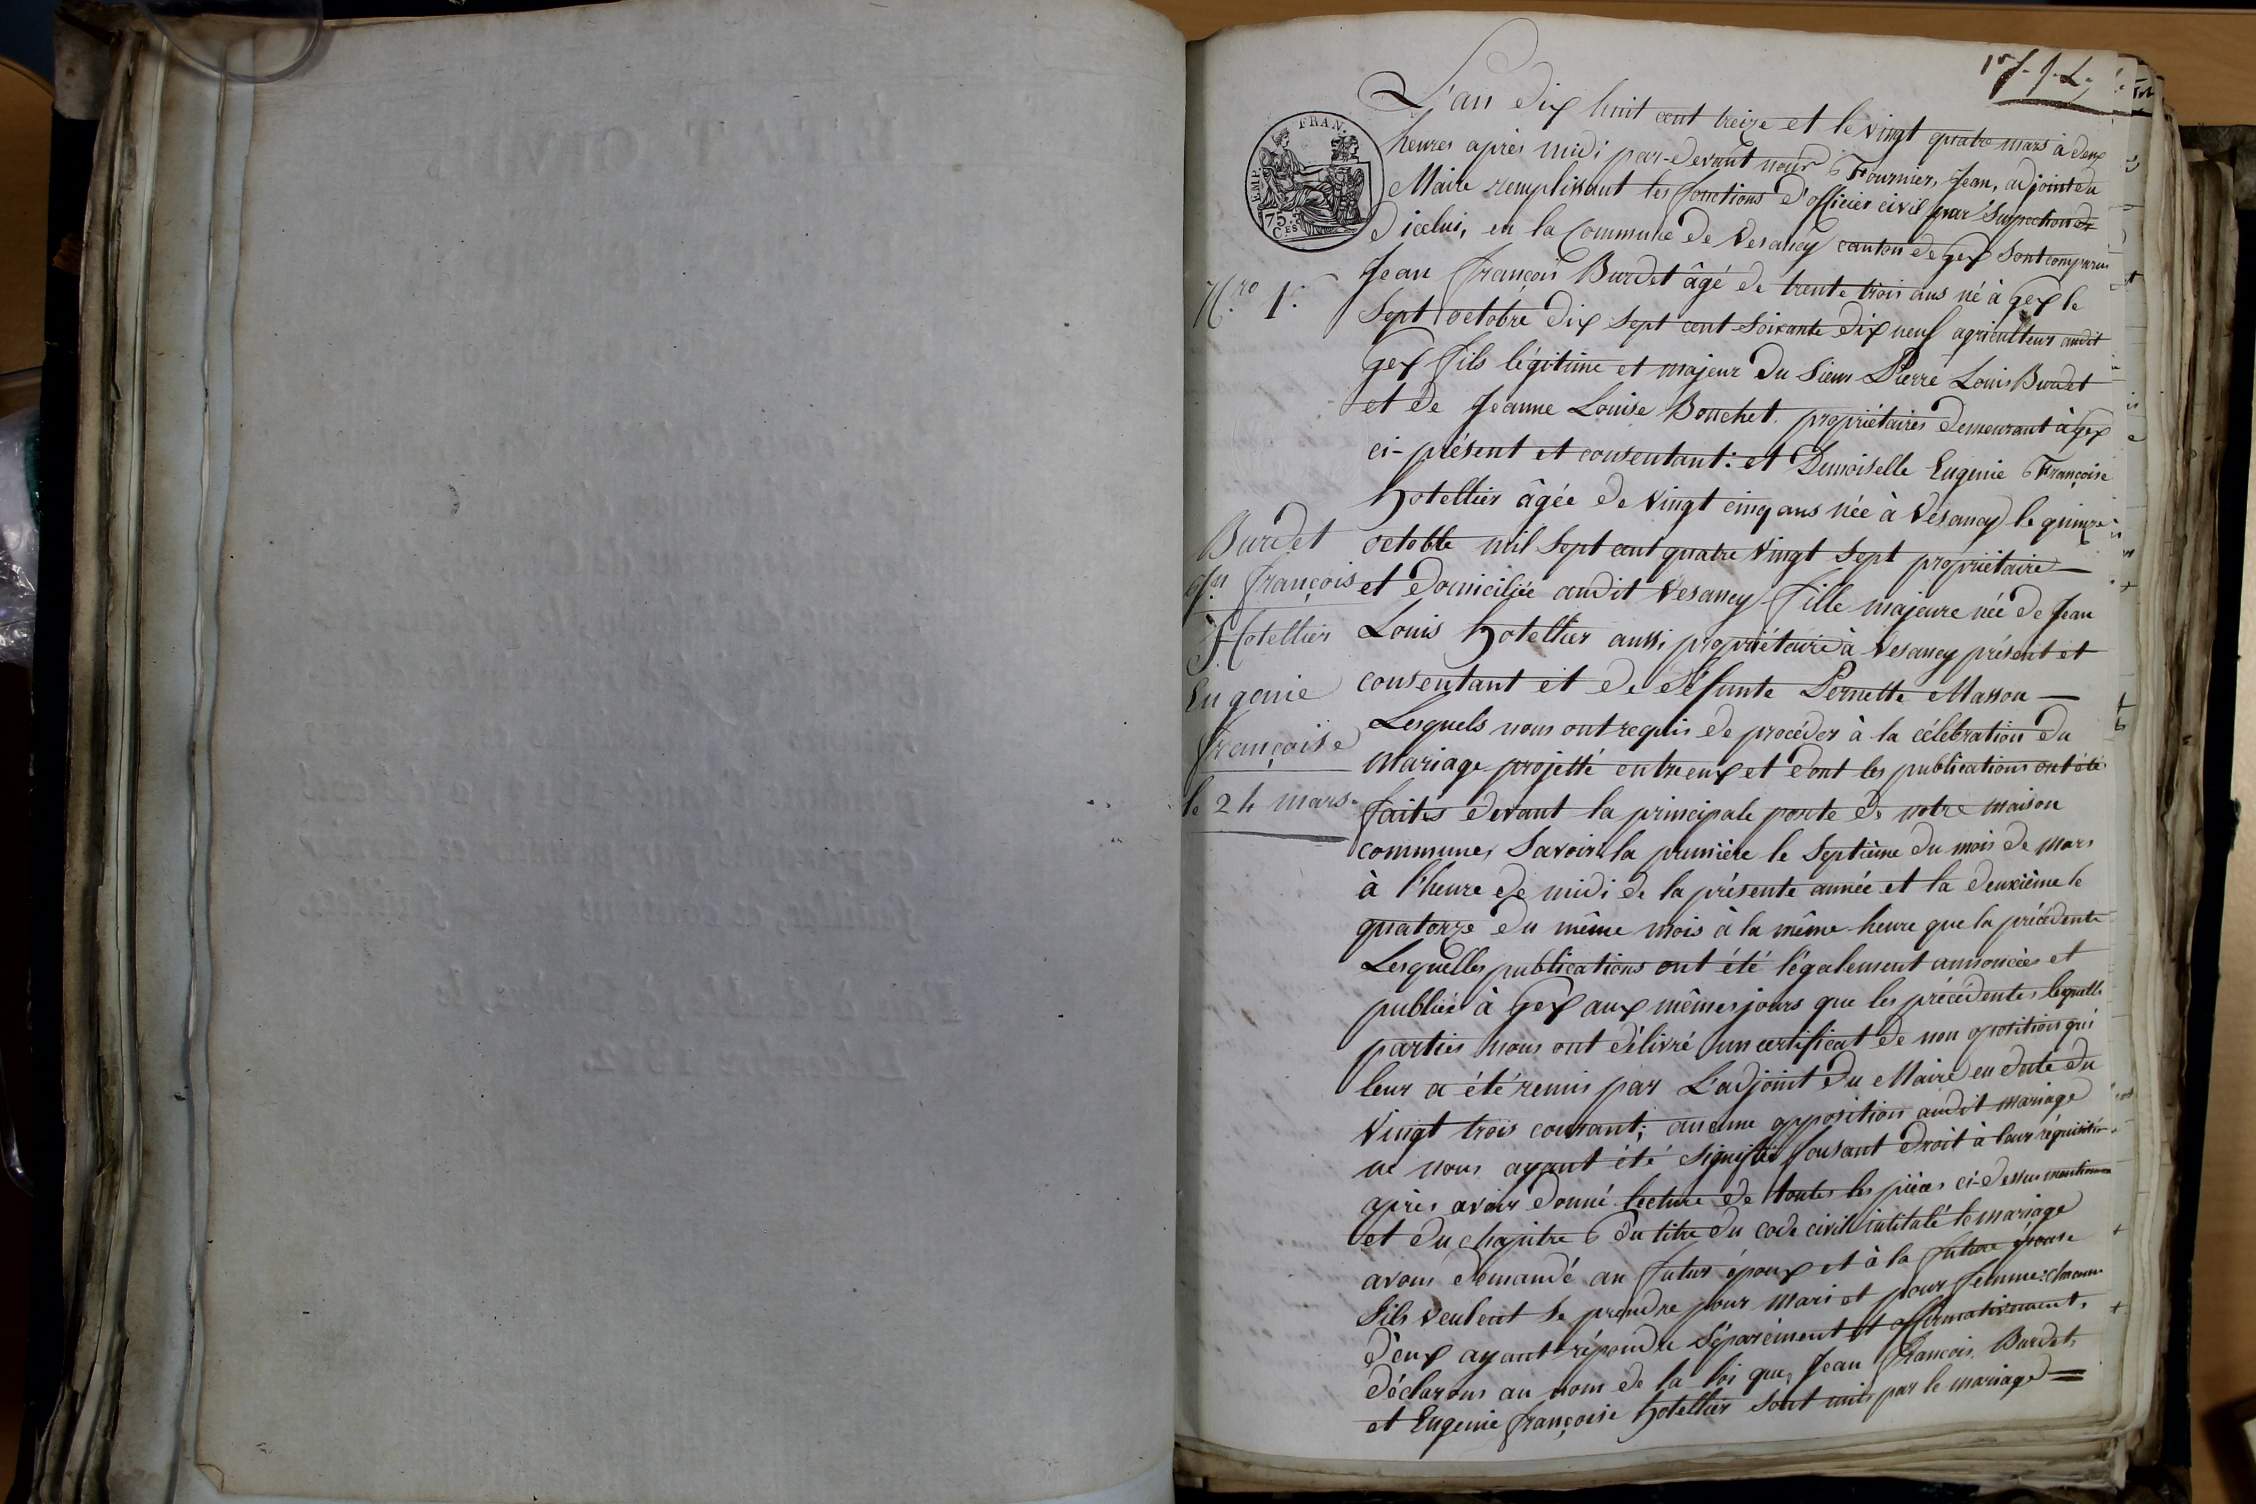 1er f. J. L.
L'an dix huit cent treize et le vingt quatre mars à deux
EMP. FRAN.
75 CES
heures après midi par-devant nous Fournier, Jean, adjoint du
Maire remplissant les fonctions d'officier civil par
d'icelui, en la Commune de Vesancy canton de Gex sont comparus
Nro 1er
Jean françois Burdet âgé de trente trois ans né à Gex le
Sept octobre dix sept cent soixante dix neuf agriculteur audit
Gex fils légitime et majeur du Sieur Pierre Louis Burdet
et de Jeanne Louise Bouchet propriétaires demeurant à Gex
ci-présent et consentant: et Demoiselle Eugenie Françoise
hotellier âgée de vingt cinq ans née à Vesancy le quinze
Burdet
octobre mil sept cent quatre vingt sept propriétaire
Jn françois
et domiciliée audit Vesancy fille majeure née de Jean
Hotellier
Louis hotellier aussi propriétaire à Vesancy présent et
Eugenie
consentant et de défunte Pernette Masson
françoise
Lesquels nous ont requis de procéder à la célébration du
mariage projetté entre eux et dont les publications ont été
le 24 mars
faites devant la principale porte de notre maison
commune, Savoir la première le septième du mois de mars
à l'heure de midi de la présente année et la deuxième le
quatorze du même mois à la même heure que la précédente
Lesquelles publications ont été légalement annoncées et
publiées à Gex aux mêmes jours que les précédentes lequelles
parties nous ont délivré un certificat de non oposition qui
leur a été remis par L'adjoint du Maire en date du
vingt trois courant; aucune opposition audit mariage
ne nous ayant été signifiée fousant droit à leur réquisition
après avoir donné lecture de toutes les pièces ci-dessus mentionnées
et du chapitre 6 du titre du code civil intitulé le mariage
avons demandé au futur époux et à la future épouse
S'ils veulent se prendre pour mari et pour femme; chacun
d'eux ayant répondu séparément et affirmativement,
déclarons au nom de la loi que, Jean françois Burdet,
et Eugenie françoise hotellier sont unis par le mariage